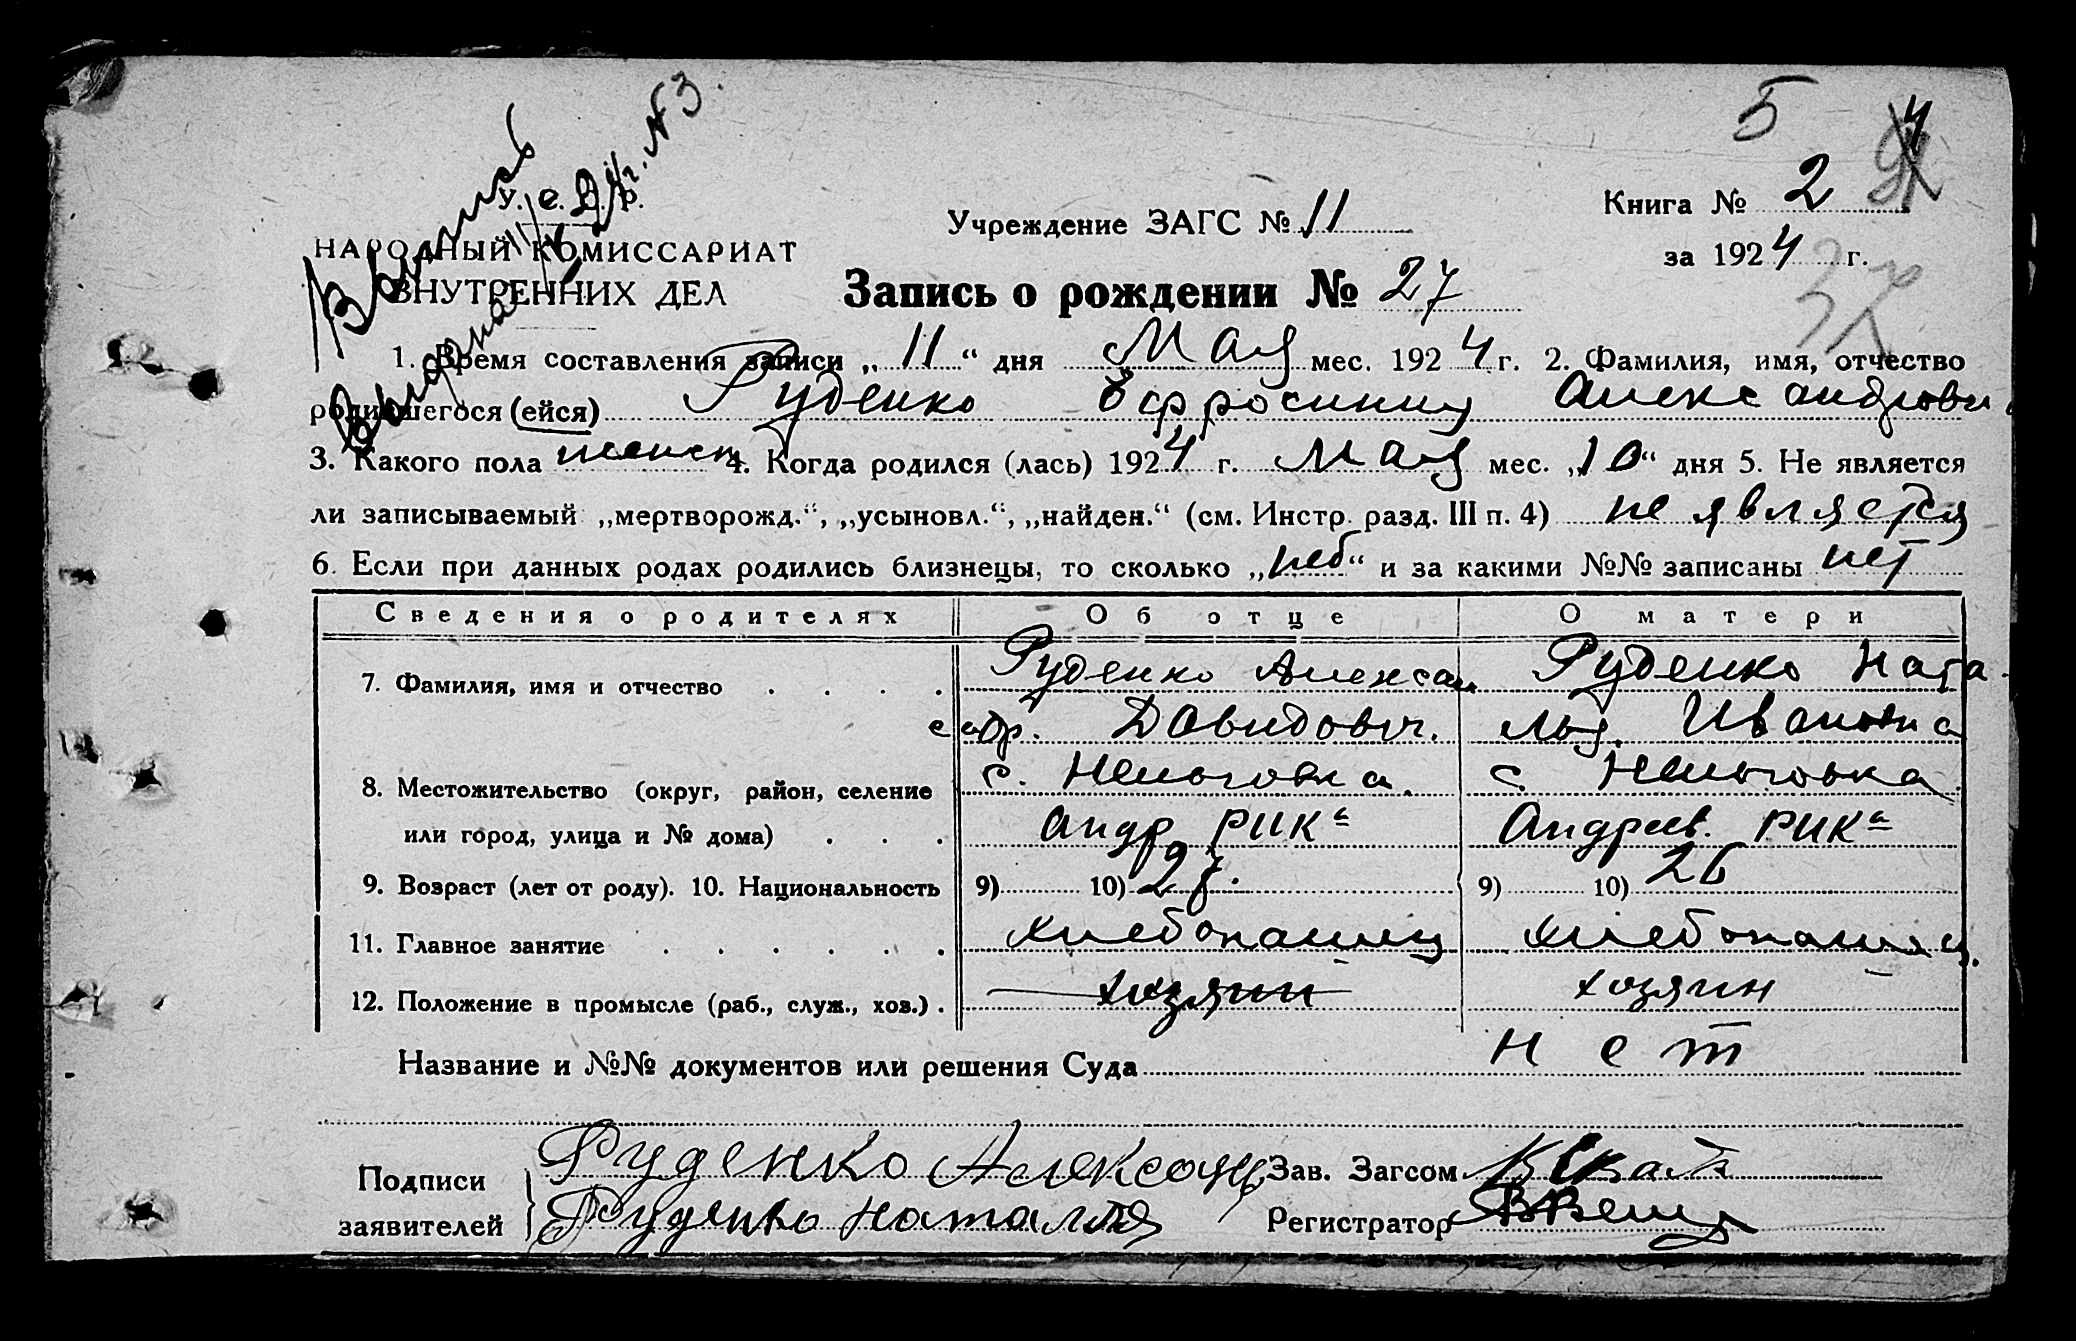 5
У. С. С. Р.
Книга № 2
Учреждение ЗАГС № 11
НАРОДНЫЙ КОМИССАРИАТ
за 1924 г.
ВНУТРЕННИХ ДЕЛ
Запись о рождении № 27
Выпись
выдана 24 г. № 3.
1. Время составления записи „11“ дня Мая мес. 1924 г. 2. Фамилия, имя, отчество
родившегося (ейся) Руденко Ефросиния Александровн
3. Какого пола женск 4. Когда родился (лась) 1924 г. Мая мес. „10“ дня 5. Не является
ли записываемый „мертворожд.“, „усыновл.“, „найден.“ (см. Инстр. разд. III п. 4) не является
6. Если при данных родах родились близнецы, то сколько „ “ и за какими №№ записаны нет
Сведения о родителях Об отце О матери
7. Фамилия, имя и отчество Руденко Алексан Руденко Ната
сандр. Давидович. лья. Ивановна
8. Местожительство (округ, район, селение с. Нельговка. с Нельговка
или город, улица и № дома) Андр РИКа Андреев. РИКа
9. Возраст (лет от роду). 10. Национальность 9) 10) 27. 9) 10) 26
11. Главное занятие хлебопашец хлебопашец.
12. Положение в промысле (раб., служ., хоз.) хозяин хозяин
Название и №№ документов или решения Суда нет
Подписи Руденко Александ Зав. Загсом
заявителей Руденко Наталия Регистратор